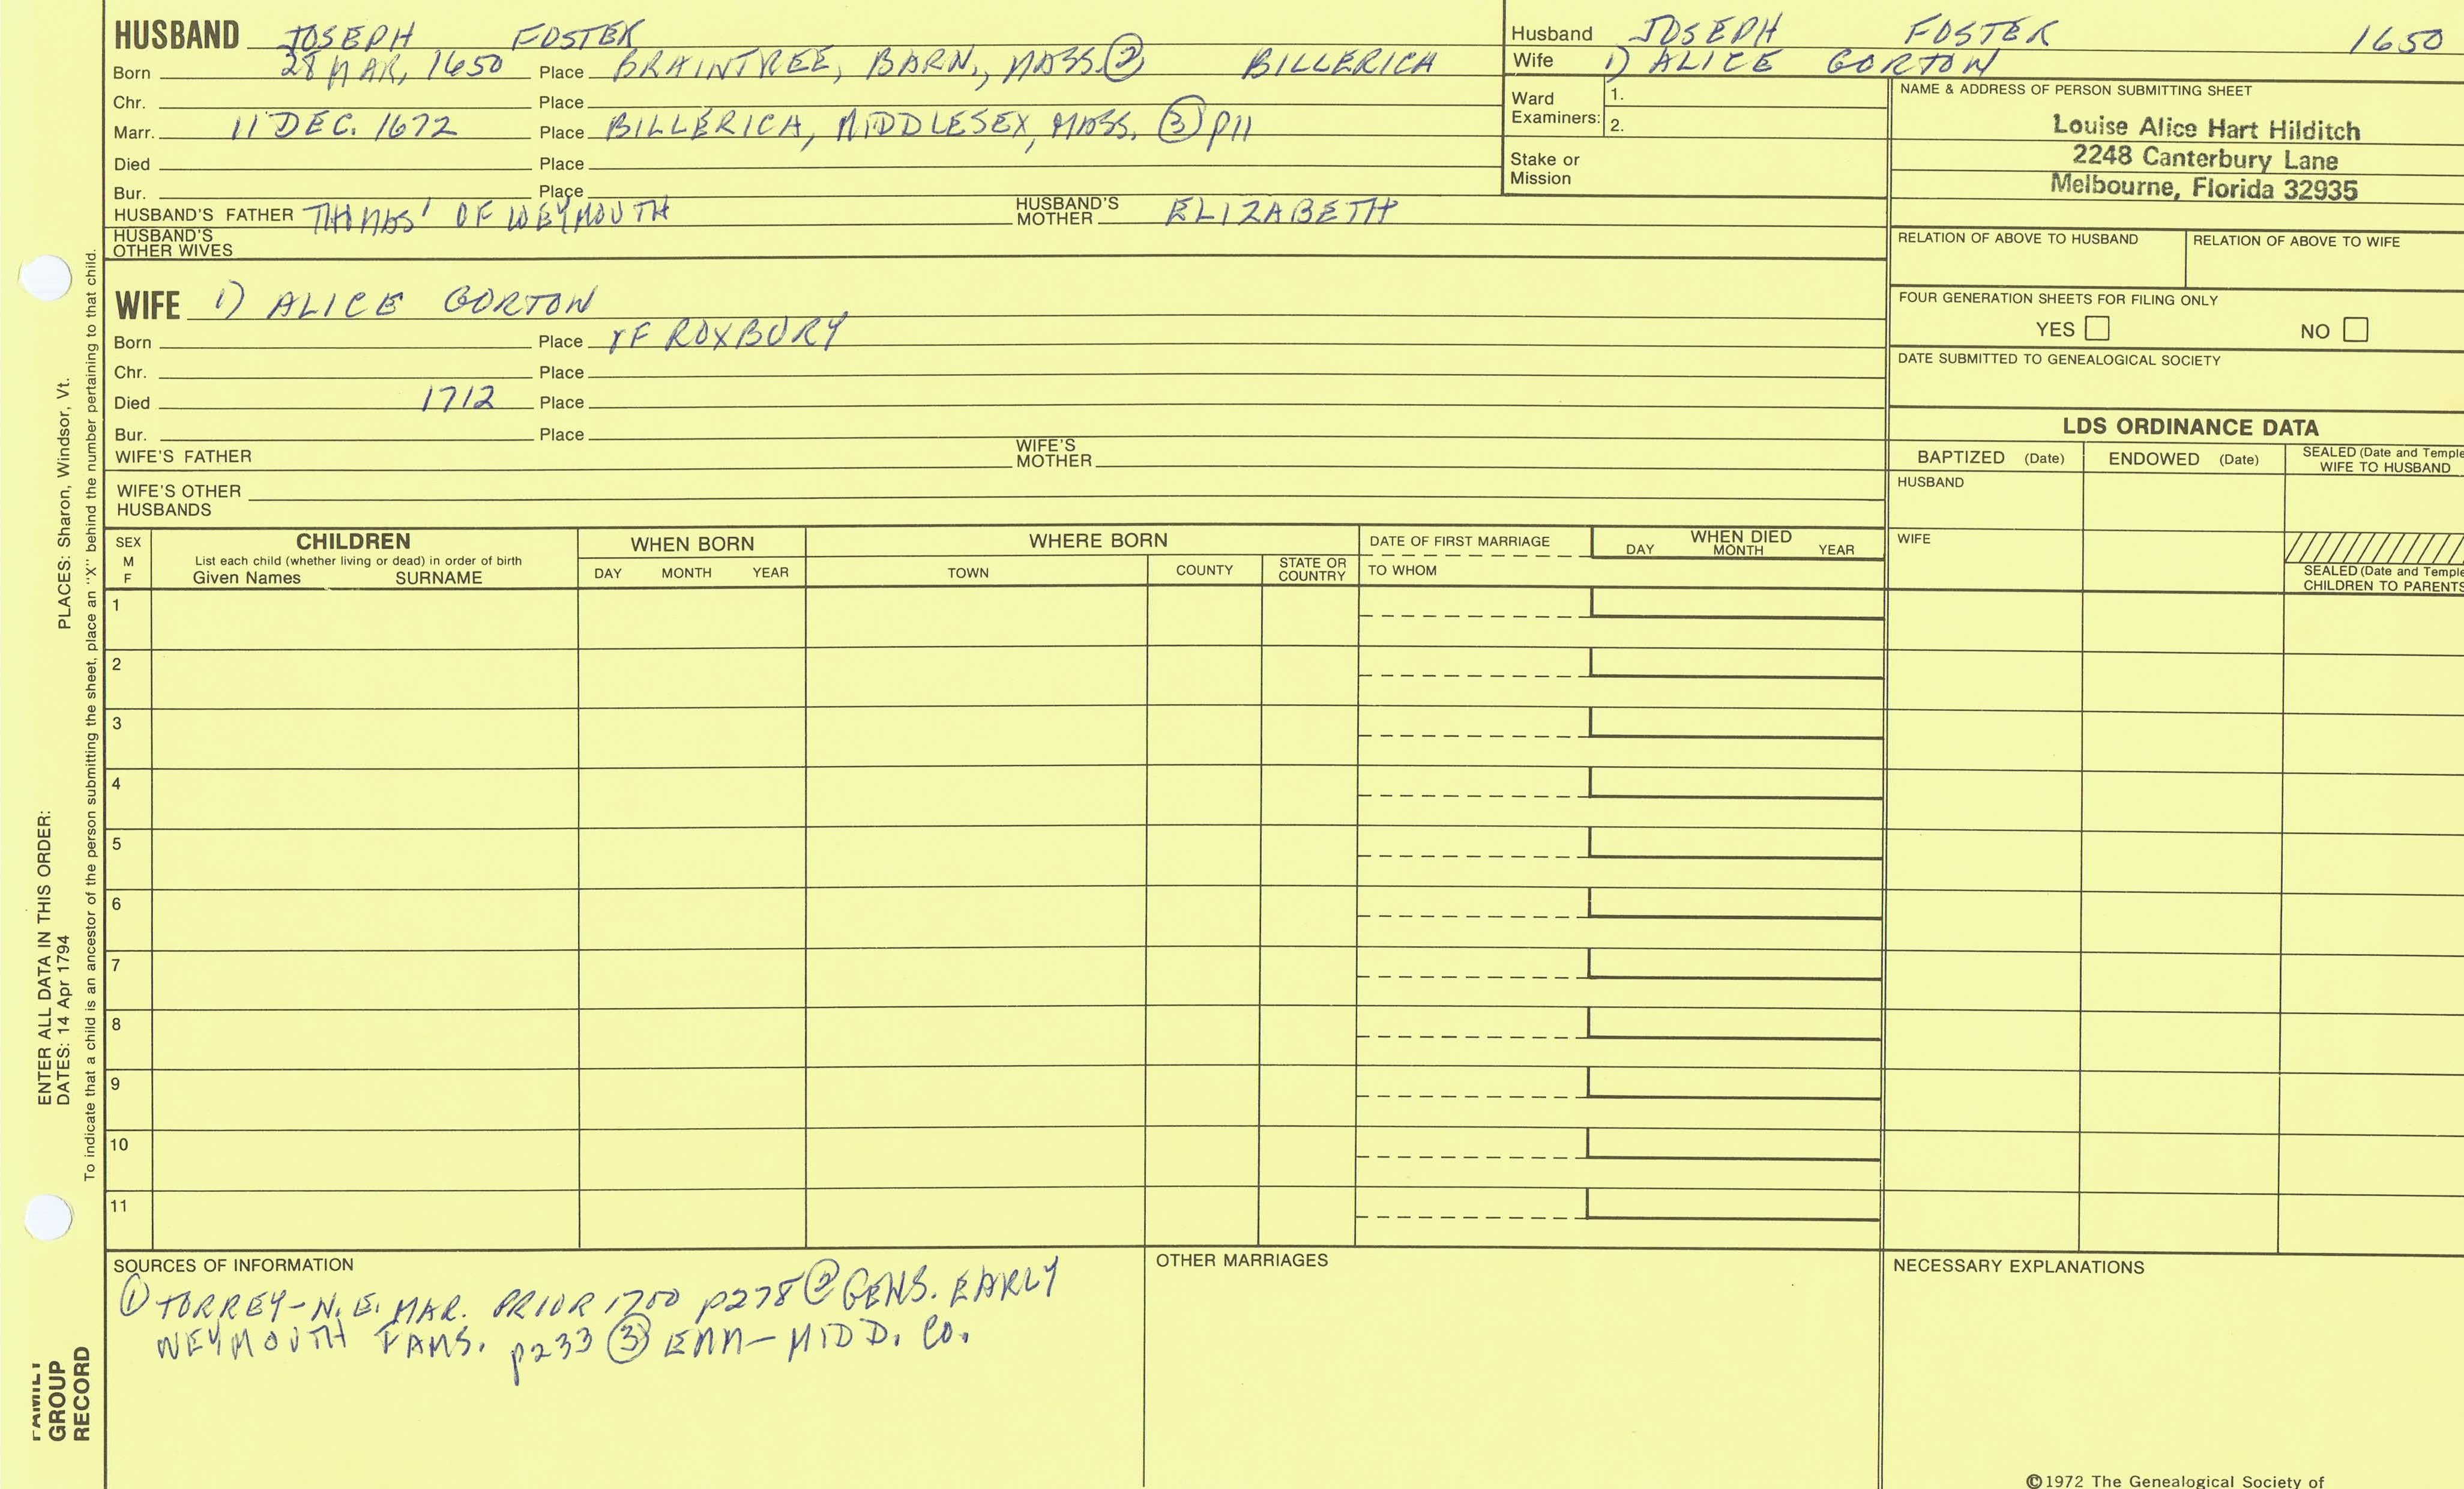 HUSBAND JOSEPH FOSTER
Born 28 MAR, 1650 Place BRAINTREE, BARN., MASS. ② BILLERICA
Chr. Place
Marr. 11 DEC. 1672 Place BILLERICA, MIDDLESEX, MASS. ③ p11
Died Place
Bur. Place
HUSBAND'S FATHER THOMAS' OF WEYMOUTH HUSBAND'S MOTHER ELIZABETH
HUSBAND'S OTHER WIVES
Husband JOSEPH FOSTER 1650
Wife 1) ALICE GORTON
Ward Examiners: 1.
2.
Stake or Mission
NAME & ADDRESS OF PERSON SUBMITTING SHEET
Louise Alice Hart Hilditch
2248 Canterbury Lane
Melbourne, Florida 32935
RELATION OF ABOVE TO HUSBAND RELATION OF ABOVE TO WIFE
FOUR GENERATION SHEETS FOR FILING ONLY
YES NO
DATE SUBMITTED TO GENEALOGICAL SOCIETY
WIFE 1) ALICE GORTON
Born Place OF ROXBURY
Chr. Place
Died 1712 Place
Bur. Place
WIFE'S FATHER WIFE'S MOTHER
WIFE'S OTHER HUSBANDS
LDS ORDINANCE DATA
BAPTIZED (Date) ENDOWED (Date) SEALED (Date and Temple
WIFE TO HUSBAND
HUSBAND
WIFE
SEALED (Date and Temple
CHILDREN TO PARENTS
SEX M F
CHILDREN
List each child (whether living or dead) in order of birth
Given Names SURNAME
WHEN BORN
DAY MONTH YEAR
WHERE BORN
TOWN COUNTY STATE OR COUNTRY
DATE OF FIRST MARRIAGE
TO WHOM
WHEN DIED
DAY MONTH YEAR
1
2
3
4
5
6
7
8
9
10
11
SOURCES OF INFORMATION
① TORREY-N.E. MAR. PRIOR 1700 p278 ② GENS. EARLY
WEYMOUTH FAMS. p233 ③ EMM-MIDD. CO.
OTHER MARRIAGES
NECESSARY EXPLANATIONS
©1972 The Genealogical Society of
PLACES: Sharon, Windsor, Vt.
ENTER ALL DATA IN THIS ORDER:
DATES: 14 Apr 1794
To indicate that a child is an ancestor of the person submitting the sheet, place an "X" behind the number pertaining to that child.
FAMILY
GROUP
RECORD